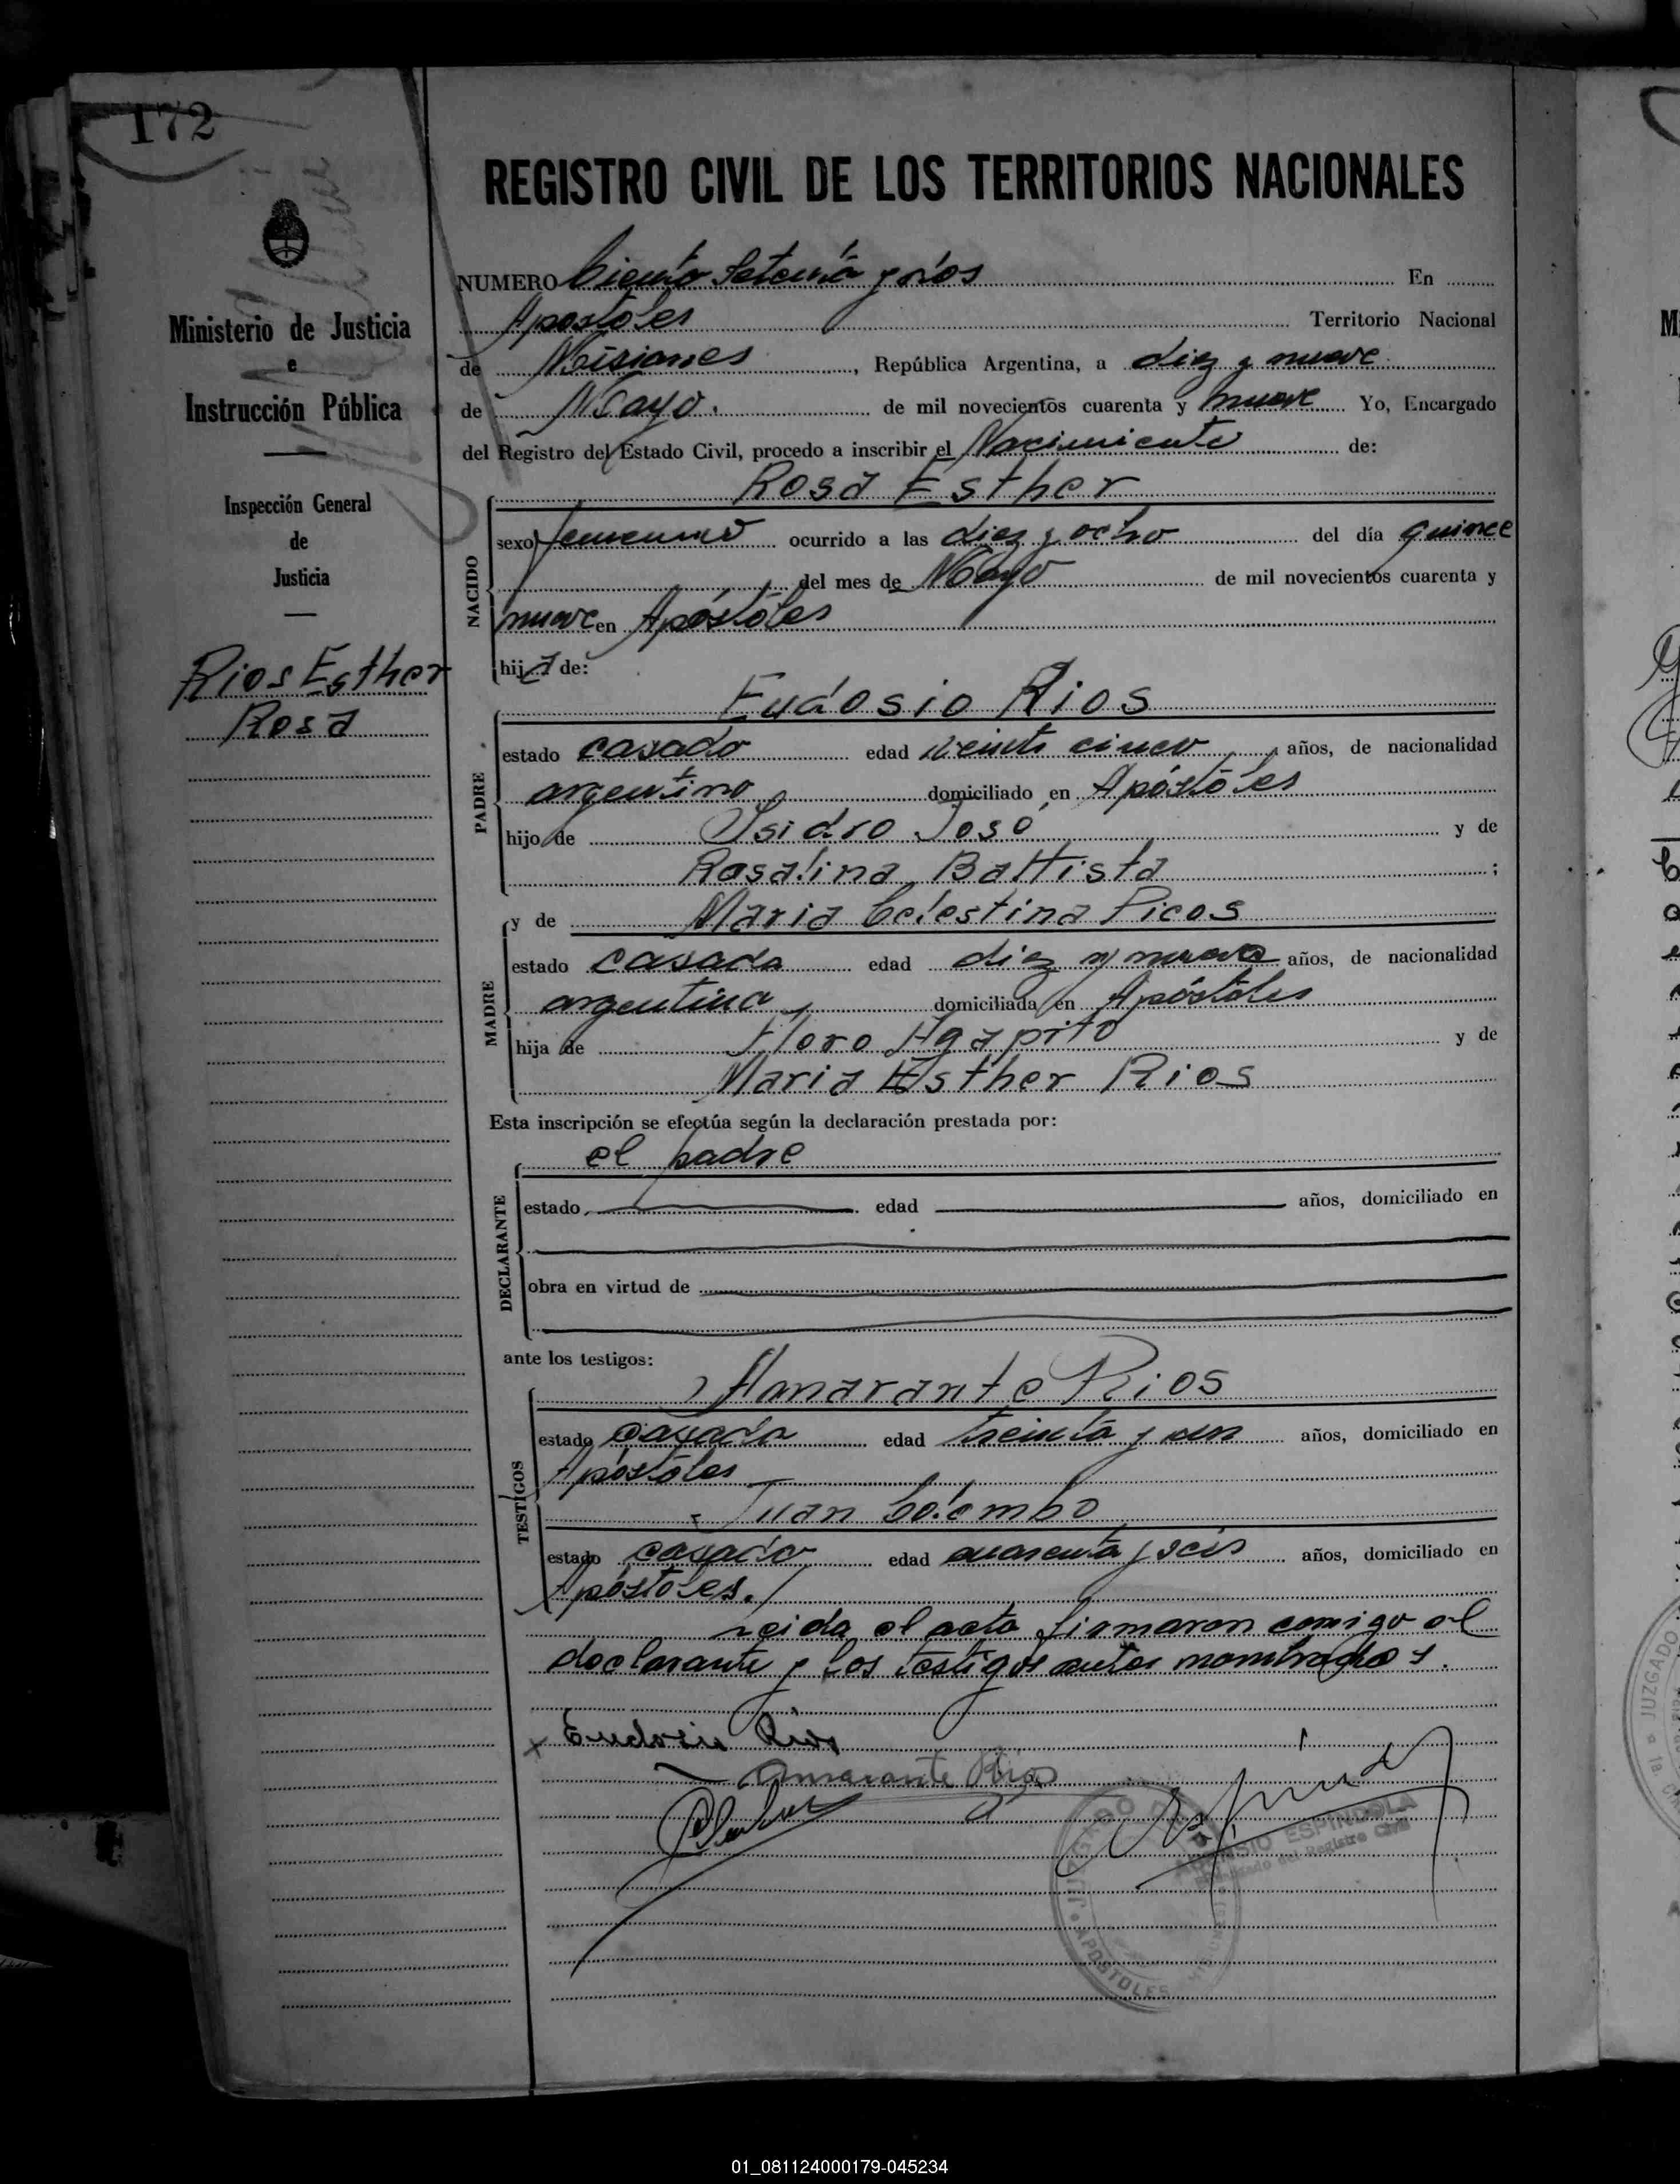 172
REGISTRO CIVIL DE LOS TERRITORIOS NACIONALES
Ministerio de Justicia
e
Instrucción Pública
Inspección General
de
Justicia
Rios Esther
Rosa
NUMERO Ciento setenta y dos En
Apóstoles Territorio Nacional
de Misiones, República Argentina, a diez y nueve
de Mayo. de mil novecientos cuarenta y nueve Yo, Encargado
del Registro del Estado Civil, procedo a inscribir el Nacimiento de:
Rosa Esther
NACIDO
sexo femenino ocurrido a las diez y ocho del día quince
del mes de Mayo de mil novecientos cuarenta y
nueve en Apóstoles
hija de:
Eudosio Rios
PADRE
estado casado edad veinte cinco años, de nacionalidad
argentino domiciliado en Apóstoles
hijo de Isidro José y de
Rosalina Battista ;
y de Maria Celestina Picos
MADRE
estado casada edad diez y nueve años, de nacionalidad
argentina domiciliada en Apóstoles
hija de Floro Agapito y de
Maria Esther Rios
Esta inscripción se efectúa según la declaración prestada por:
el padre
DECLARANTE
estado edad años, domiciliado en
obra en virtud de
ante los testigos:
Amarante Rios
TESTIGOS
estado casado edad treinta y un años, domiciliado en
Apóstoles
Juan Colombo
estado casado edad cuarenta y seis años, domiciliado en
Apóstoles.
Leida el acta firmaron comigo el
declarante y los testigos antes mombrados.
x Eudosio Rios
Amarante Rios
ESPINDOLA
Encargado del Registro Civil
JUZGADO DE
APOSTOLES
01_081124000179-045234